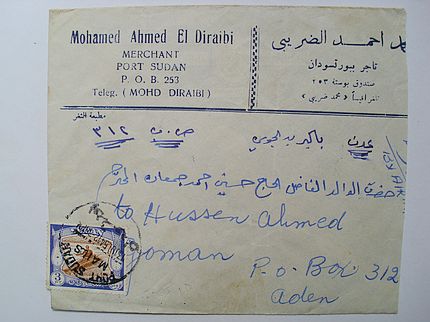 Mohamed Ahmed El Diraibi
MERCHANT
PORT SUDAN
P. O. B. 253
Teleg. ( MOHD DIRAIBI )
احمد الضريبي
تاجر ببورتسودان
صندوق بوستة ٢٥٣
تلغرافياً « محمد ضريبي »
مطبعة النقر
عدن
ص.ب ٣١٢
بالبريد الجوي
حضرة الوالد الفاضل الحاج حسين احمد جمعان المحترم
to Hussen Ahmed
goman
P.o Box 312
aden
PORT SUDAN
MAILS
3